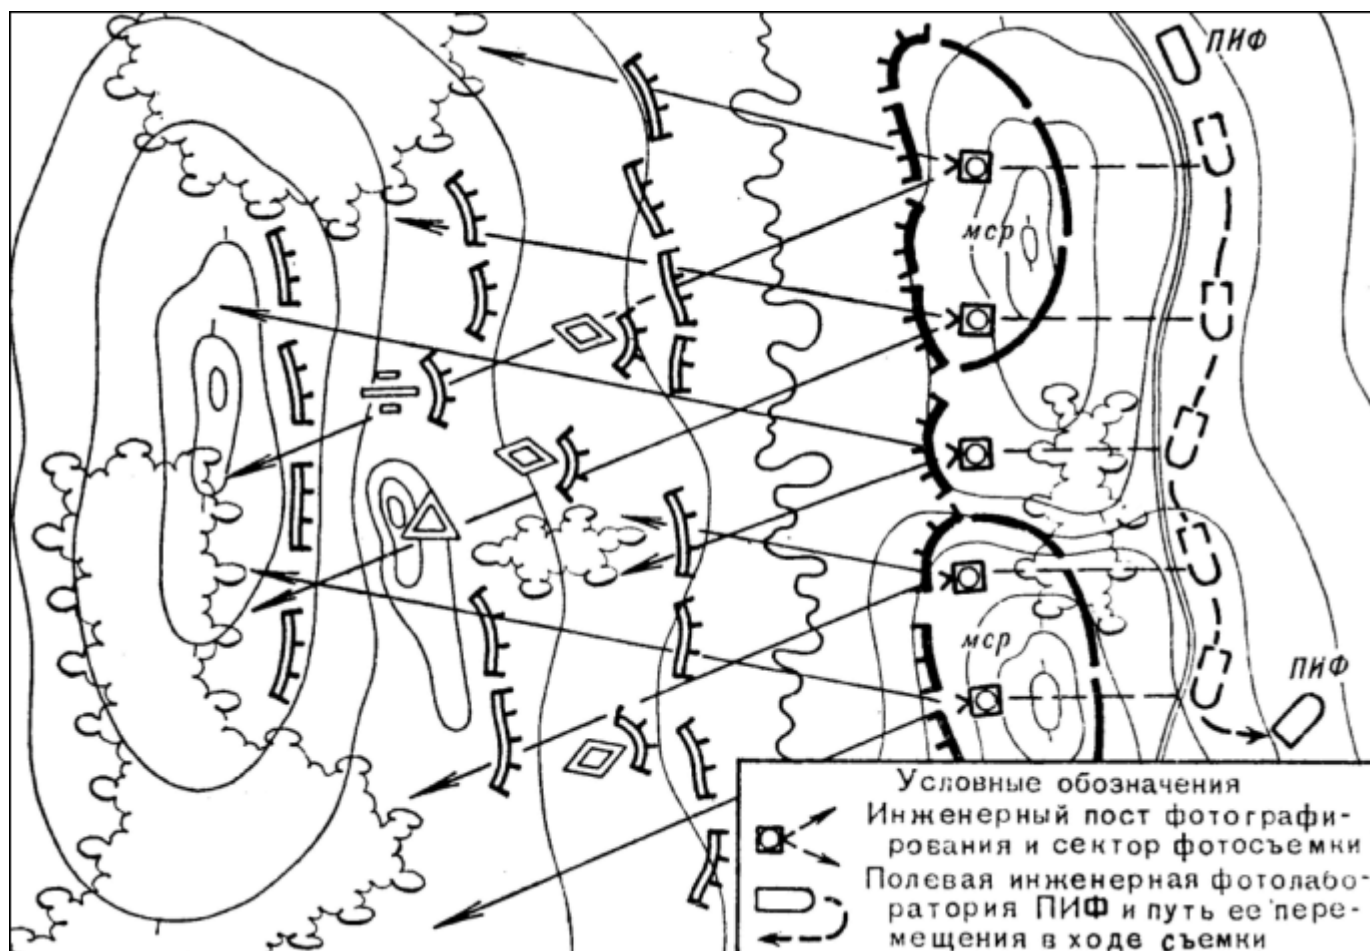 ПИФ
мср
мср
ПИФ
Условные обозначения
Инженерный пост фотографи-
рования и сектор фотосъемки
Полевая инженерная фотолабо-
ратория ПИФ и путь ее пере-
мещения в ходе съемки